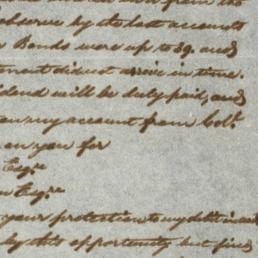 from the
observe by the last accounts
Bonds were up to 89. and
did not arrive in time.
will be duly paid, and
my account from Colº.
on you for
Esqre
Esqre
your protection to my debt
by this opportunity but find